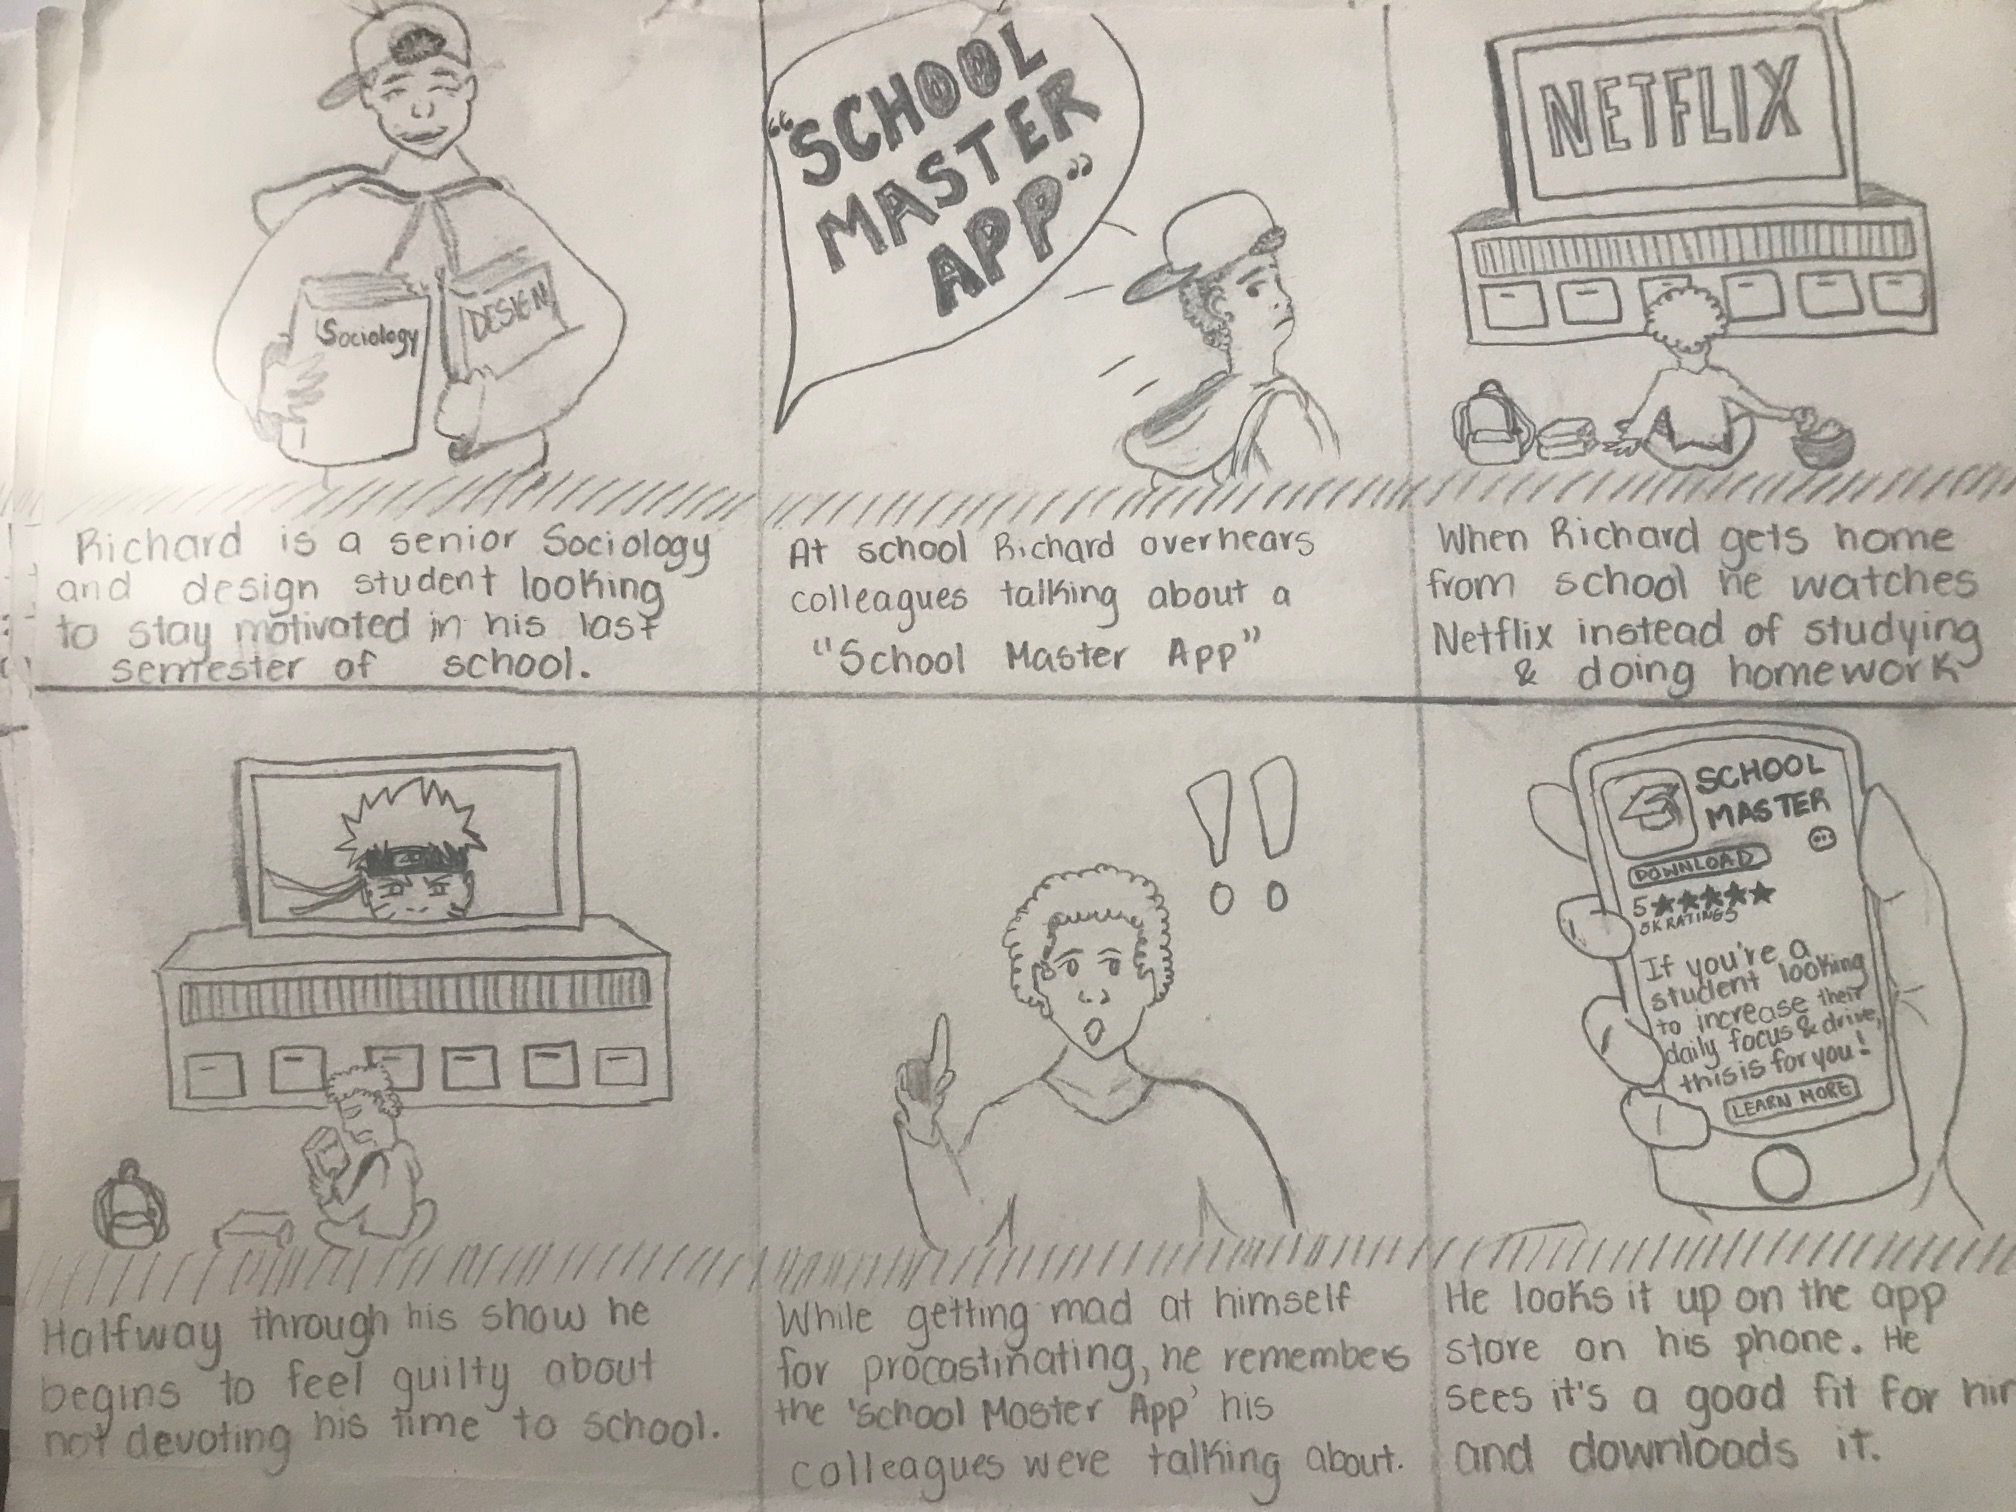 Sociology
DESIGN
Richard is a senior Sociology
and design student looking
to stay motivated in his last
semester of school.
"SCHOOL
MASTER
APP"
At school Richard overhears
colleagues talking about a
"School Master App"
NETFLIX
When Richard gets home
from school he watches
Netflix instead of studying
& doing homework
Halfway through his show he
begins to feel guilty about
not devoting his time to school.
!!
While getting mad at himself
for procastinating, he remembers
the 'School Master App' his
colleagues were talking about.
SCHOOL
MASTER
DOWNLOAD
5★★★★★
5K RATINGS
If you're a
student looking
to increase their
daily focus & drive,
this is for you!
LEARN MORE
He looks it up on the app
store on his phone. He
sees it's a good fit for him
and downloads it.